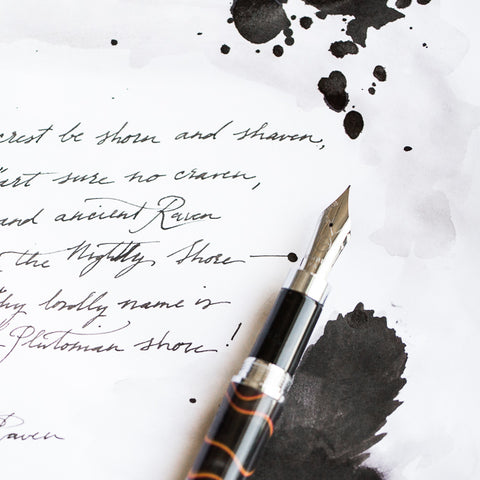 crest be shorn and shaven,
art sure no craven,
and ancient Raven
the Nightly Shore —
thy lordly name is
Plutonian shore!
Raven